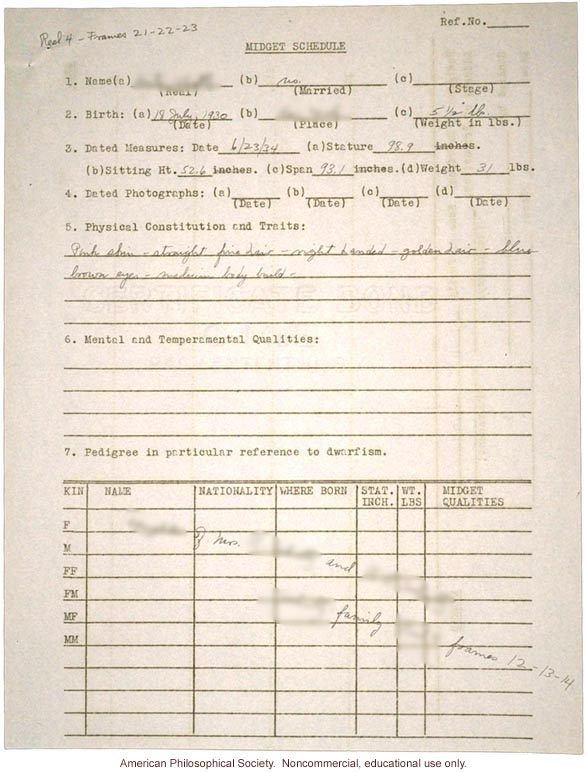 Reel 4 - Frames 21-22-23
Ref.No.
MIDGET SCHEDULE
1. Name(a) (b) no. (c)
(Real) (Married) (Stage)
2. Birth: (a) 18 July, 1930 (b) (c) 5 1/2 lb.
(Date) (Place) (Weight in lbs.)
3. Dated Measures: Date 6/23/34 (a)Stature 98.9 inches.
(b)Sitting Ht. 52.6 inches. (c)Span 93.1 inches. (d)Weight 31 lbs.
4. Dated Photographs: (a) (b) (c) (d)
(Date) (Date) (Date) (Date)
5. Physical Constitution and Traits:
Pink skin - straight fine hair - right handed - golden hair - blue
brown eyes - medium body build -
6. Mental and Temperamental Qualities:
7. Pedigree in particular reference to dwarfism.
KIN NAME NATIONALITY WHERE BORN STAT. INCH. WT. LBS MIDGET QUALITIES
F
M of Mrs.
FF and
FM
MF family
MM frames 12-13-14
American Philosophical Society. Noncommercial, educational use only.